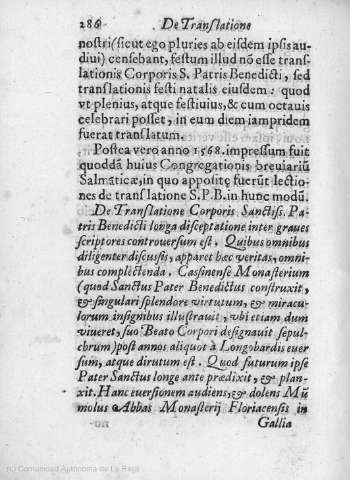 286 De Translatione
nostri (sicut ego pluries ab eisdem ipsis au-
diui) censebant, festum illud nõ esse tran-
slationis Corporis S. Patris Benedicti, sed
translationis festi natalis eiusdem: quod
vt plenius, atque festiuius, & cum octauis
celebrari posset, in eum diem iampridem
fuerat translatum.
Postea vero anno 1568. impressum fuit
quoddã huius Congregationis breuiariũ
Salmãticæ, in quo appositę fuerũt lectio-
nes de translatione S.P.B. in hunc modũ.
De Translatione Corporis Sanctiss. Pa-
tris Benedicti longa disceptatione inter graues
scriptores controuersum est. Quibus omnibus
diligenter discussis, apparet hæc veritas, omni-
bus complectenda. Casinense Monasterium
(quod Sanctus Pater Benedictus construxit,
& singulari splendore virtutum, & miracu-
lorum insignibus illustrauit, vbi etiam dum
viueret, suo Beato Corpori designauit sepul-
chrum) post annos aliquot à Longobardis euer
sum, atque dirutum est. Quod futurum ipse
Pater Sanctus longe ante prædixit, & plan-
xit. Hanc euersionem audiens, & dolens Mũ
molus Abbas Monasterij Floriacensis in
Gallia
(c) Comunidad Autónoma de La Rioja